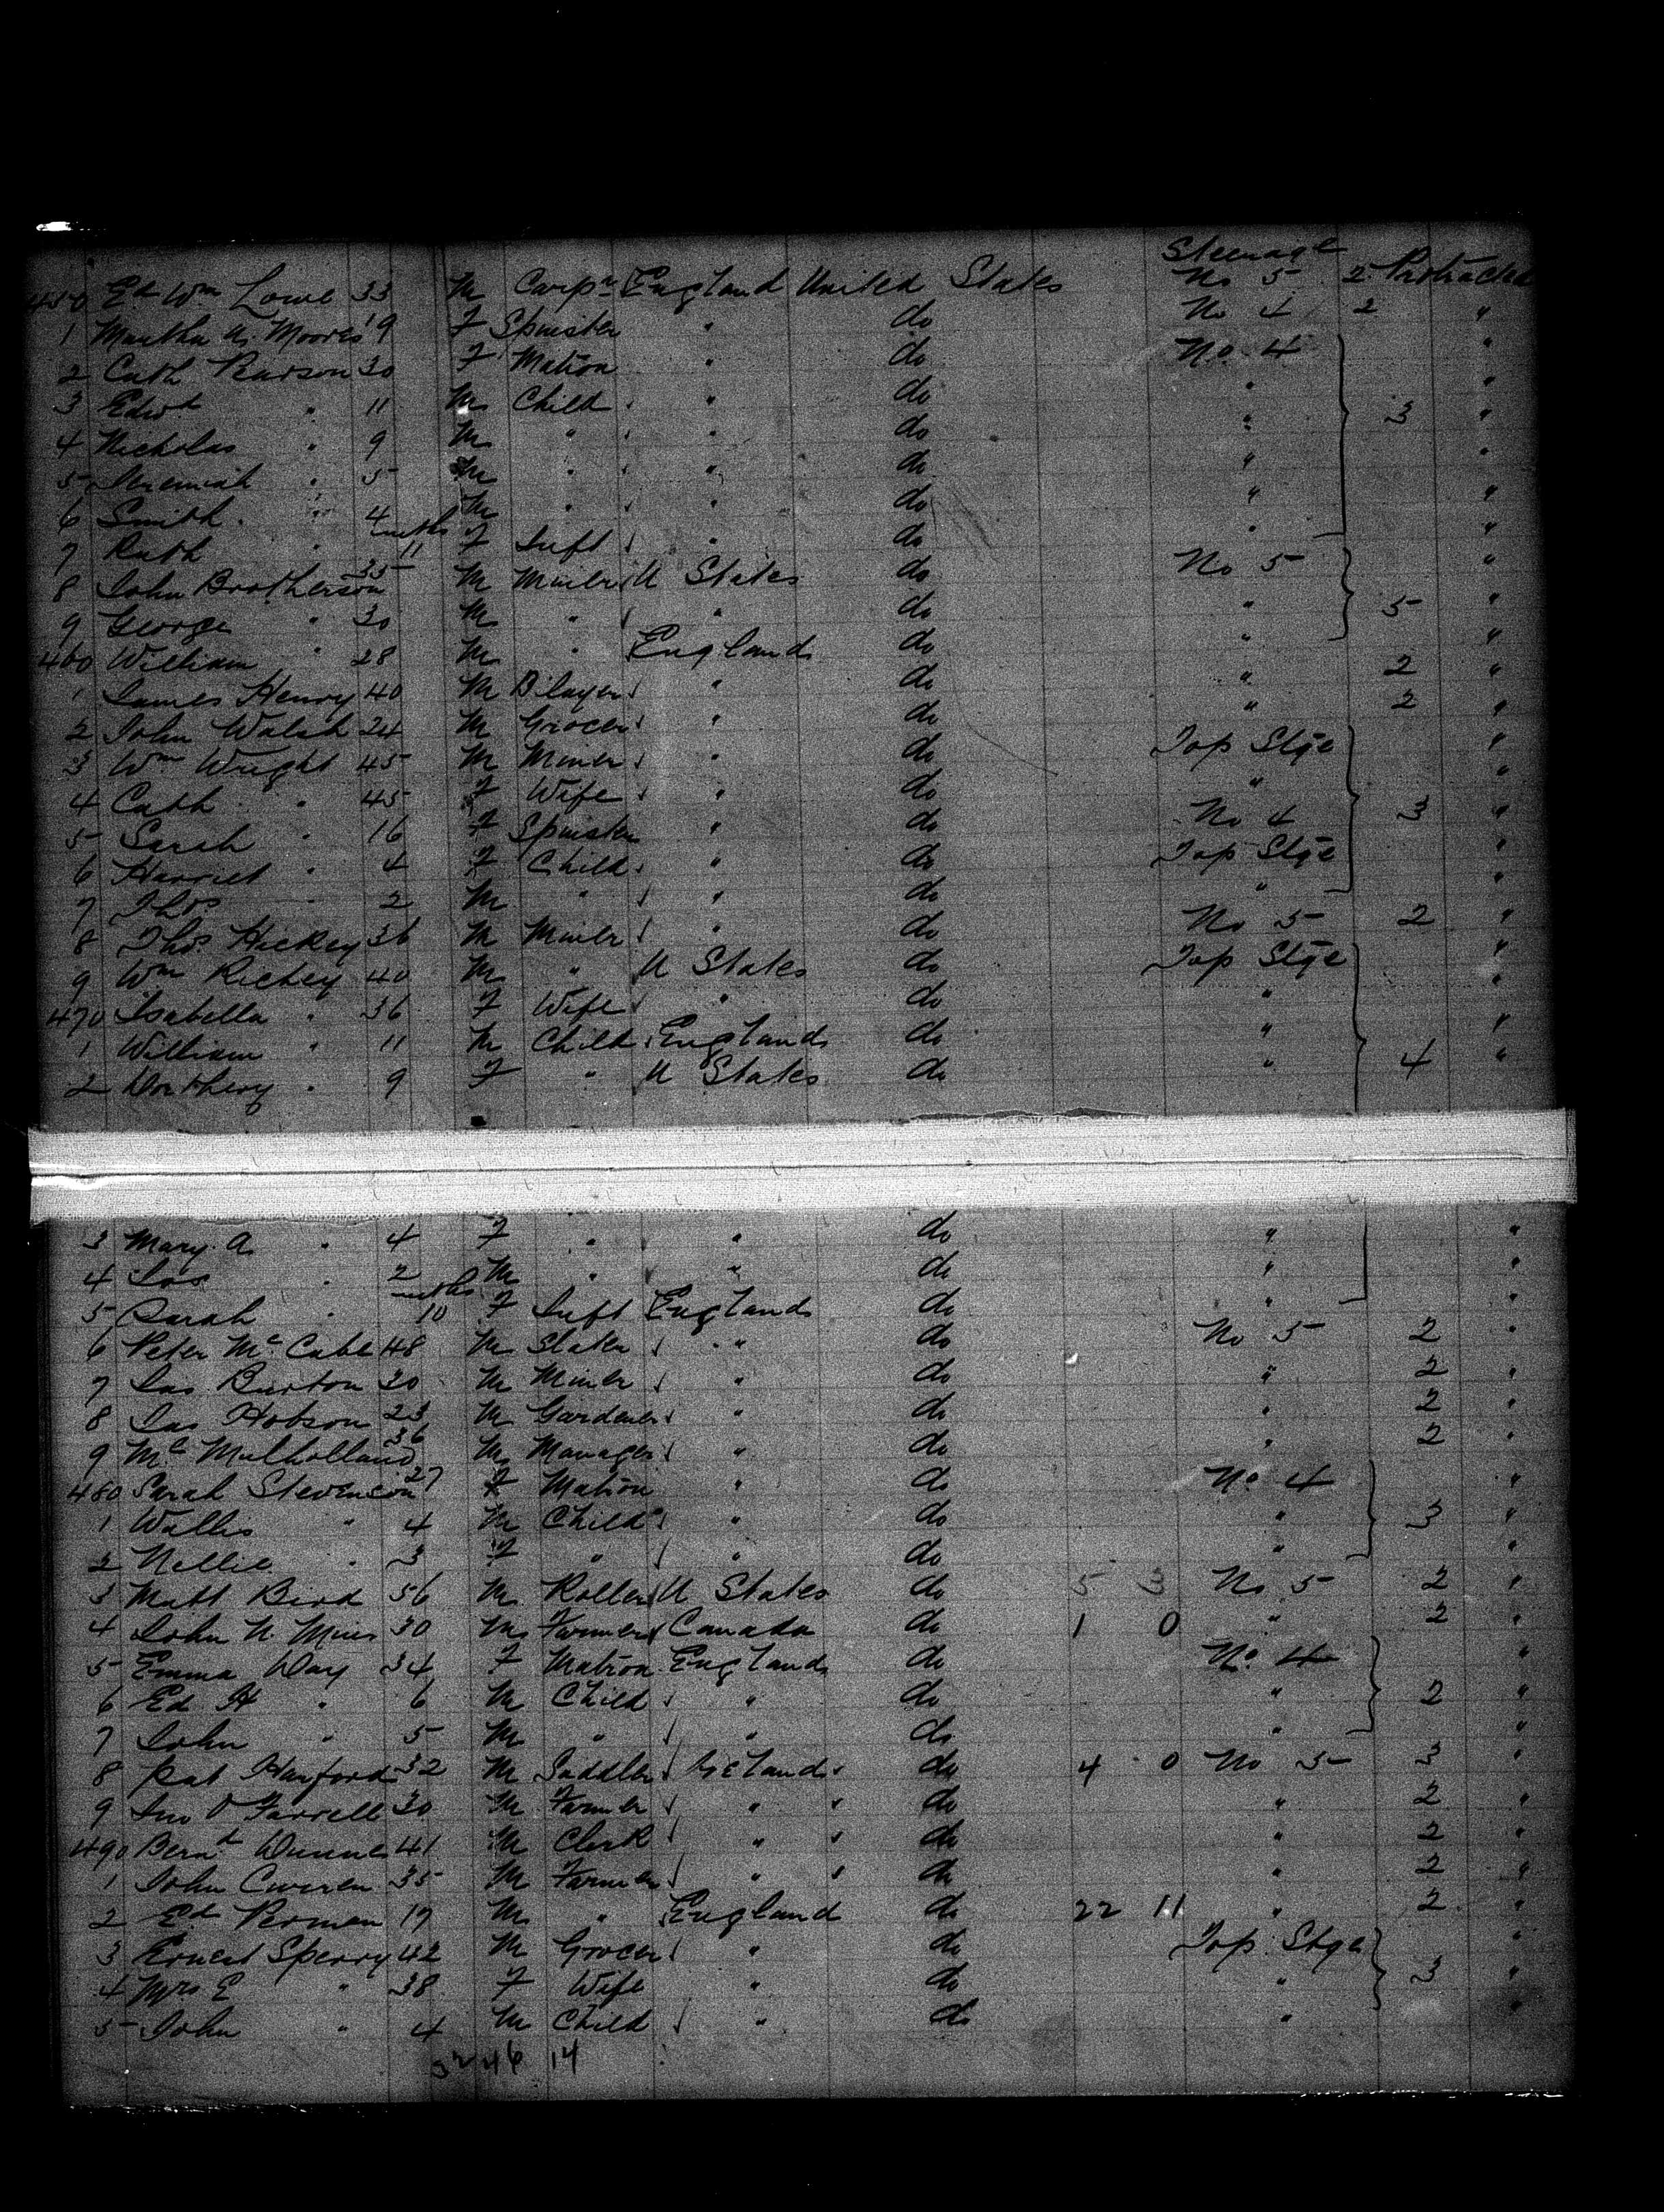 Steerage
450 Ed Wm Lowe 33 M Carpr England United States No 5 2 Protracted
1 Martha A. Moores 19 F Spinster " do No 4 2 "
2 Cath Pearson 30 F Matron " do No 4 "
3 Edwd " 11 M Child " do " "
4 Nicholas " 9 M " " do " 3 "
5 Jeremiah " 5 M " " do " "
6 Smith " 4 M " " do " "
7 Ruth " mths 11 F Inft " do " "
8 John Brotherson 35 M Miner U States do No 5 "
9 George " 30 M " " do " 5 "
460 William " 28 M " England do " "
1 James Henry 40 M B'layer " do " 2 "
2 John Walsh 24 M Grocer " do " 2 "
3 Wm Wright 45 M Miner " do Top Stge "
4 Cath " 45 F Wife " do " "
5 Sarah " 16 F Spinster " do No 4 3 "
6 Harriet " 4 F Child " do Top Stge "
7 Thos " 2 M " " do " "
8 Thos Hickey 36 M Miner " do No 5 2 "
9 Wm Richey 40 M " U States do Top Stge "
470 Isabella " 36 F Wife " do " "
1 William " 11 M Child England do " "
2 Dorthery " 9 F " U States do " 4 "
3 Mary A. " 4 F " " do " "
4 Jas " 2 M " " do " "
5 Sarah " mths 10 F Inft England do " "
6 Peter McCabe 48 M Slater " do No 5 2 "
7 Jas Burton 30 M Miner " do " 2 "
8 Jas Hobson 23 M Gardener " do " 2 "
9 Ml Mulholland 36 M Manager " do " 2 "
480 Sarah Stevenson 27 F Matron " do No 4 "
1 Wallis " 4 M Child " do " 3 "
2 Nellie " 3 F " " do " "
3 Matt Bird 56 M Roller U States do 5 3 No 5 2 "
4 John N. Mins 30 M Farmer Canada do 1 0 " 2 "
5 Emma Day 34 F Matron England do No 4 "
6 Ed H " 6 M Child " do " 2 "
7 John " 5 M " " do " "
8 Pat Hanford 32 M Saddler Ireland do 4 0 No 5 3 "
9 Jno O'Farrell 30 M Farmer " " do " 2 "
490 Bernd Dunne 41 M Clerk " " do " 2 "
1 John Curren 35 M Farmer " " do " 2 "
2 Ed Perman 19 M " England do 22 11 " 2 "
3 Ernest Sperry 42 M Grocer " do Top Stge "
4 Mrs E " 38 F Wife " do " 3 "
5 John " 4 M Child " do " "
32 46 14